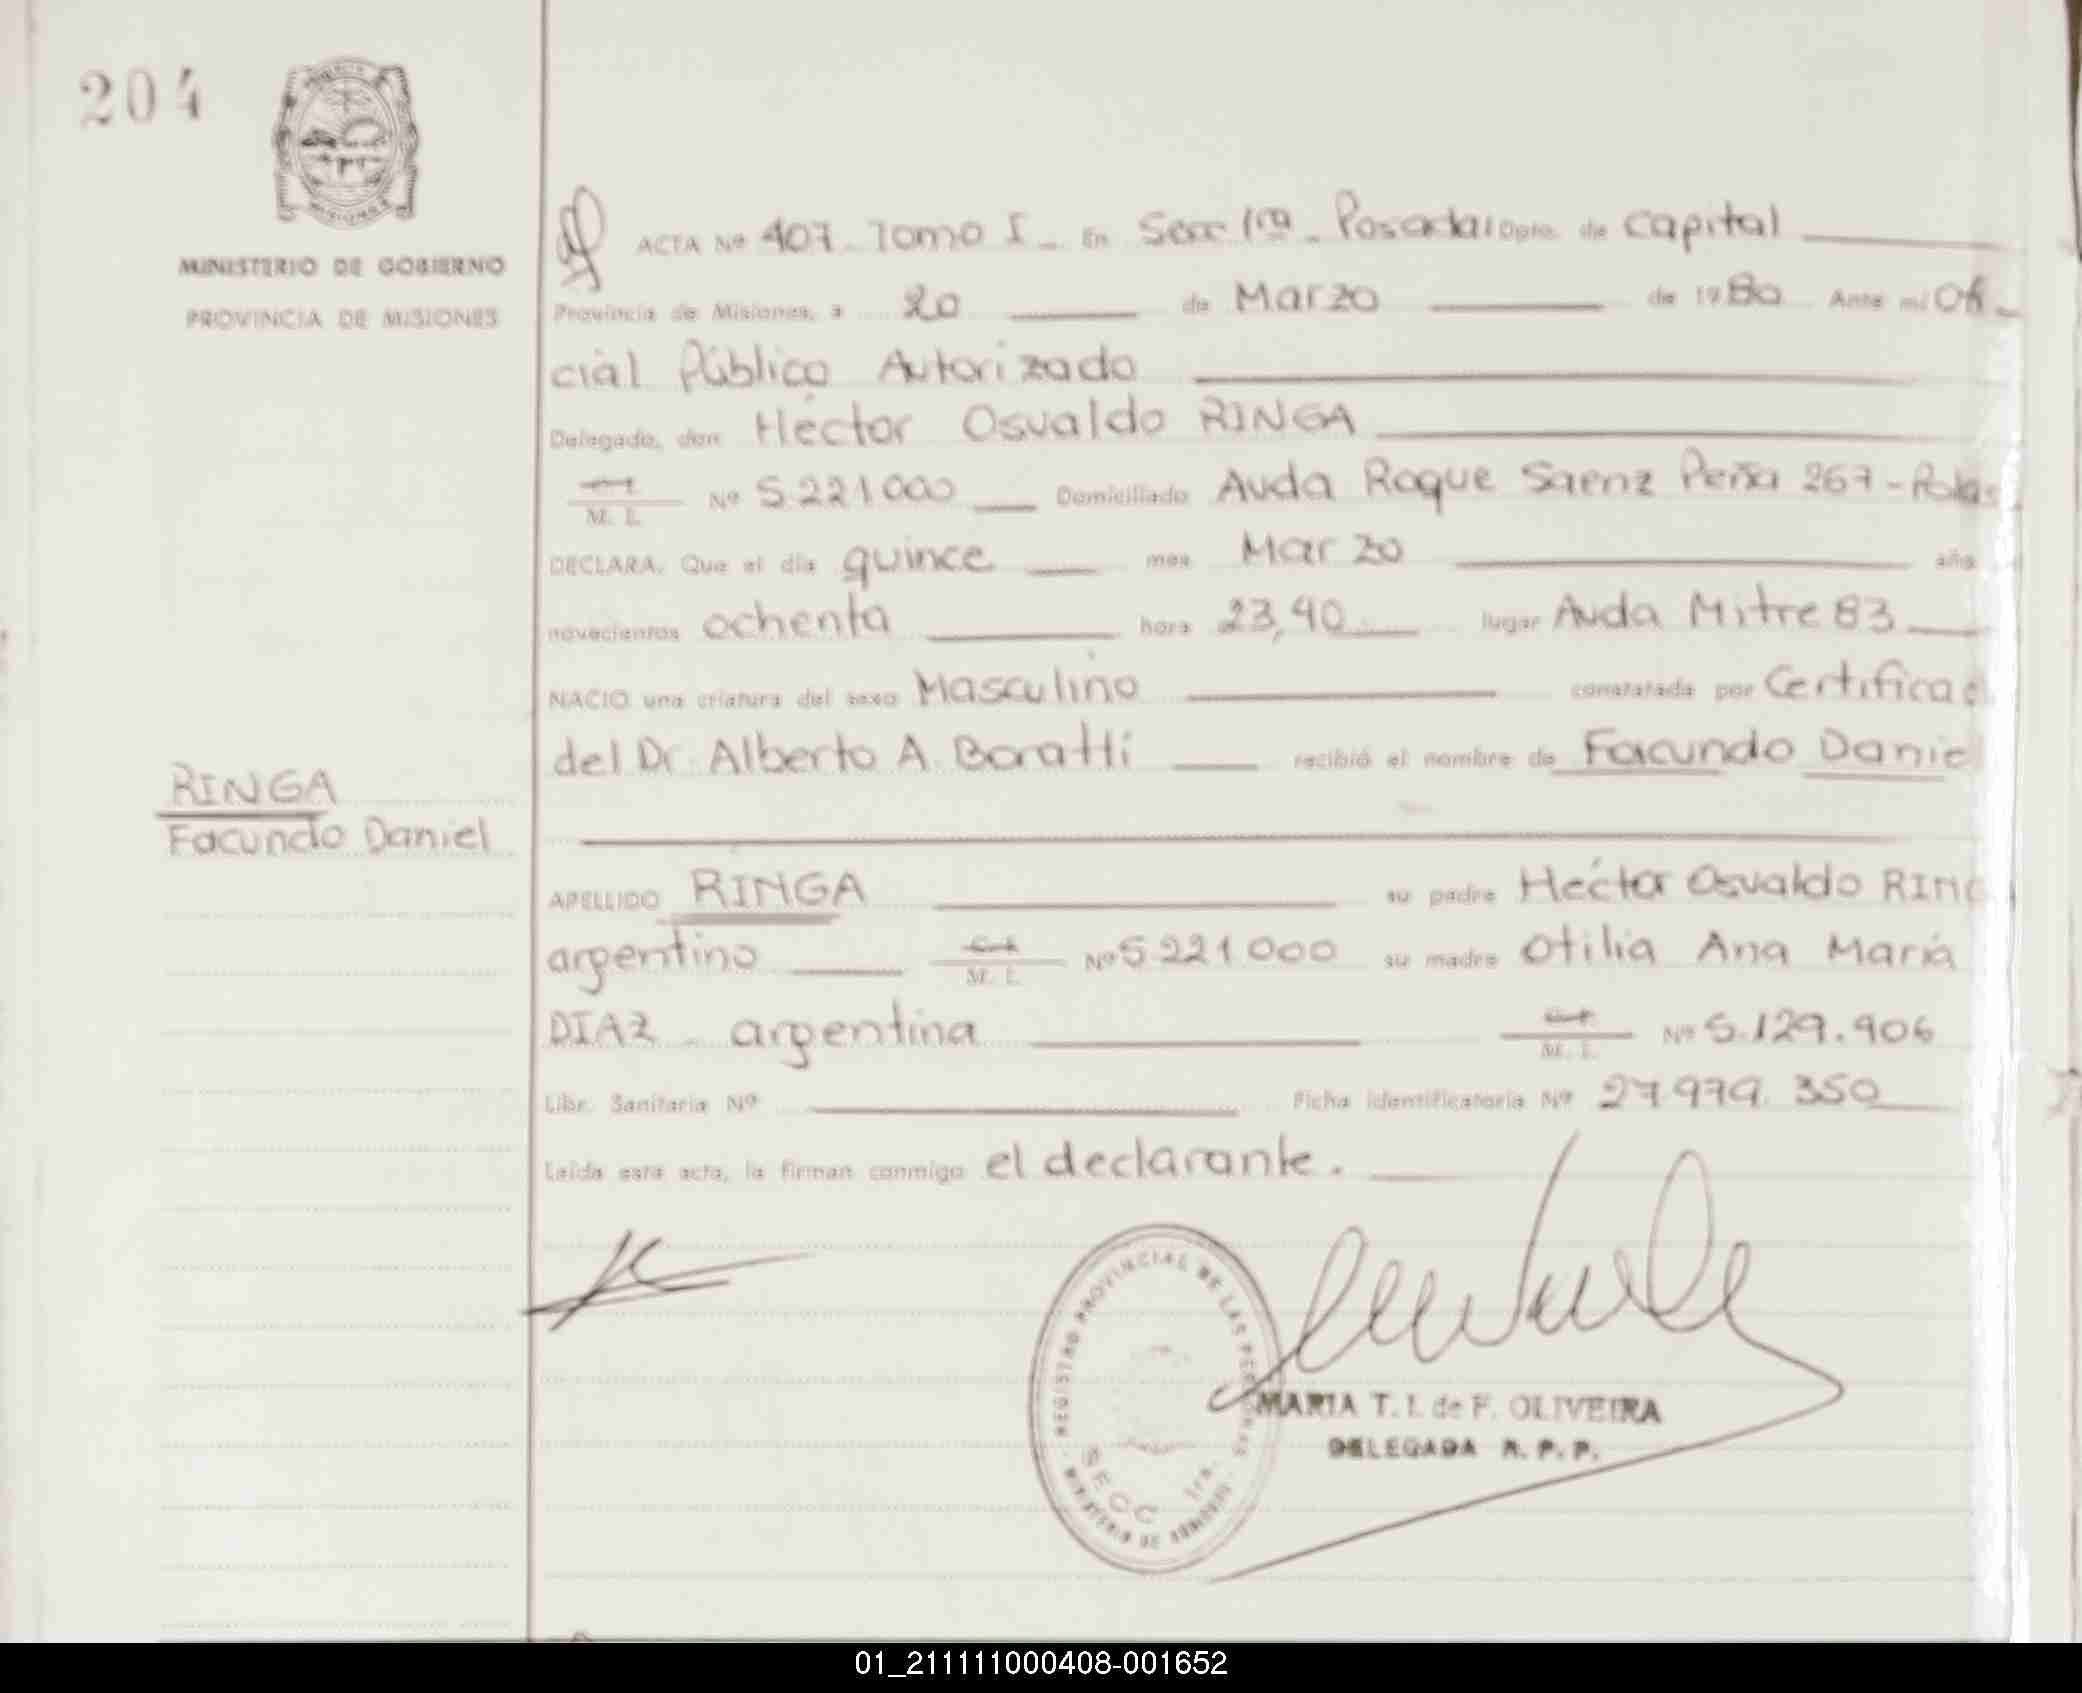 204
MISIONES
MINISTERIO DE GOBIERNO
PROVINCIA DE MISIONES
ACTA Nº 407 - Tomo I - En Secc 1ra - Posadas Dpto. de Capital
Provincia de Misiones, a 20 de Marzo de 1980 Ante mi Ofi-
cial Público Autorizado
Delegado, don Héctor Osvaldo RINGA
M. I. Nº 5.221.000 Domiciliado Avda Roque Saenz Peña 267 -
DECLARA: Que el día quince mes Marzo año
novecientos ochenta hora 23,40 lugar Avda Mitre 83
NACIO una criatura del sexo Masculino constatada por Certificad
del Dr. Alberto A. Boratti recibió el nombre de Facundo Danie
RINGA
Facundo Daniel
APELLIDO RINGA su padre Héctor Osvaldo RING
argentino C.I. M. I. Nº 5.221.000 su madre Otilia Ana María
DIAZ - argentina C.I. M. I. Nº 5.129.906
Libr. Sanitaria Nº Ficha identificatoria Nº 27.979.350
Leída esta acta, la firman conmigo el declarante.
REGISTRO PROVINCIAL DE LAS PERSONAS
SECC 1ra.
MINISTERIO DE GOBIERNO
MARIA T. I. de F. OLIVEIRA
DELEGADA R. P. P.
01_211111000408-001652